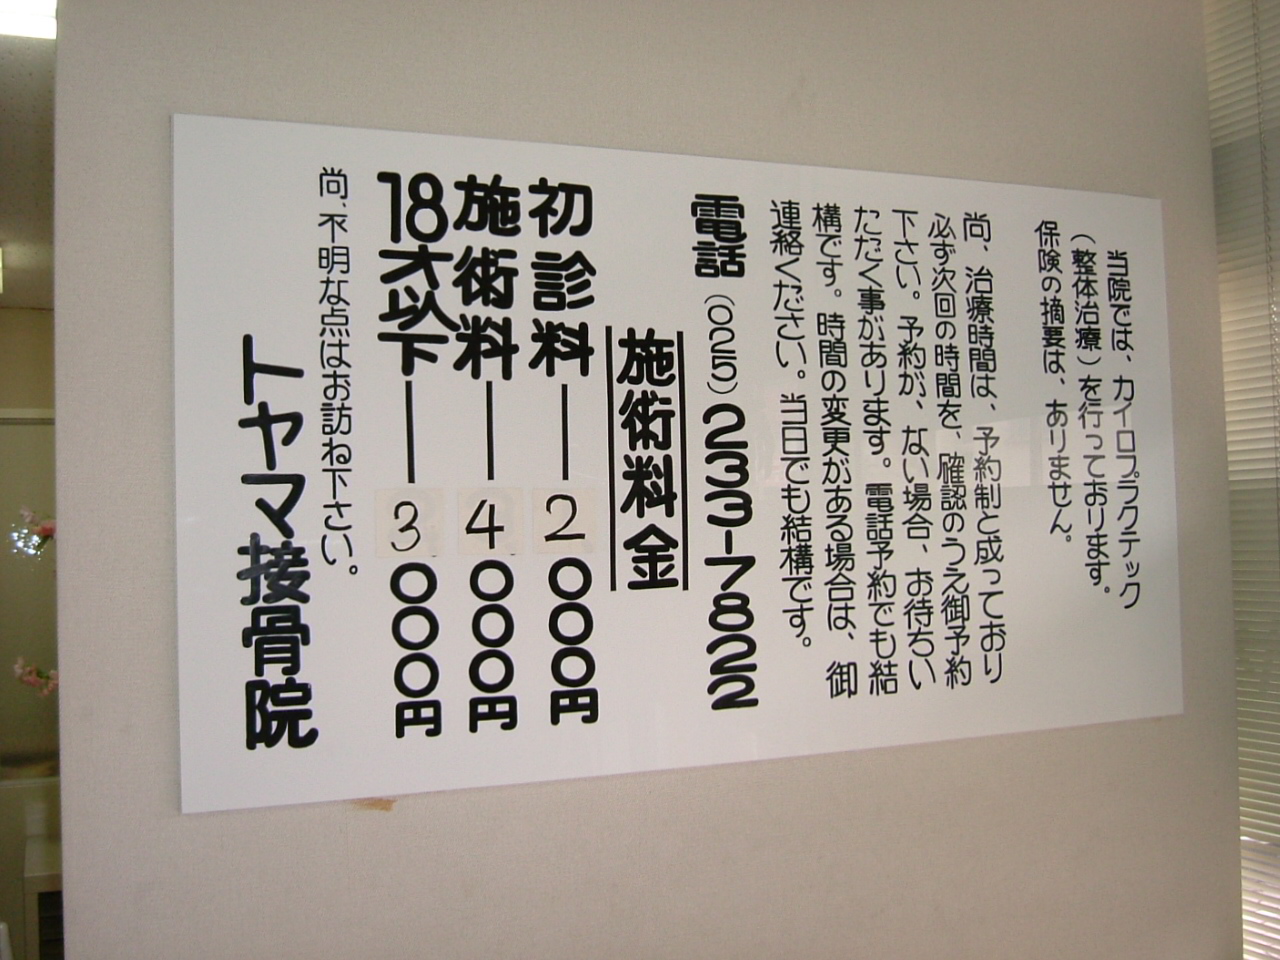 当院では、カイロプラクテック
（整体治療）を行っております。
保険の摘要は、ありません。
尚、治療時間は、予約制と成っており
必ず次回の時間を、確認のうえ御予約
下さい。予約が、ない場合、お待ちい
ただく事があります。電話予約でも結
構です。時間の変更がある場合は、御
連絡ください。当日でも結構です。
電話（025）233-7822
施術料金
初診料―2000円
施術料―4000円
18才以下―3000円
尚、不明な点はお訪ね下さい。
トヤマ接骨院